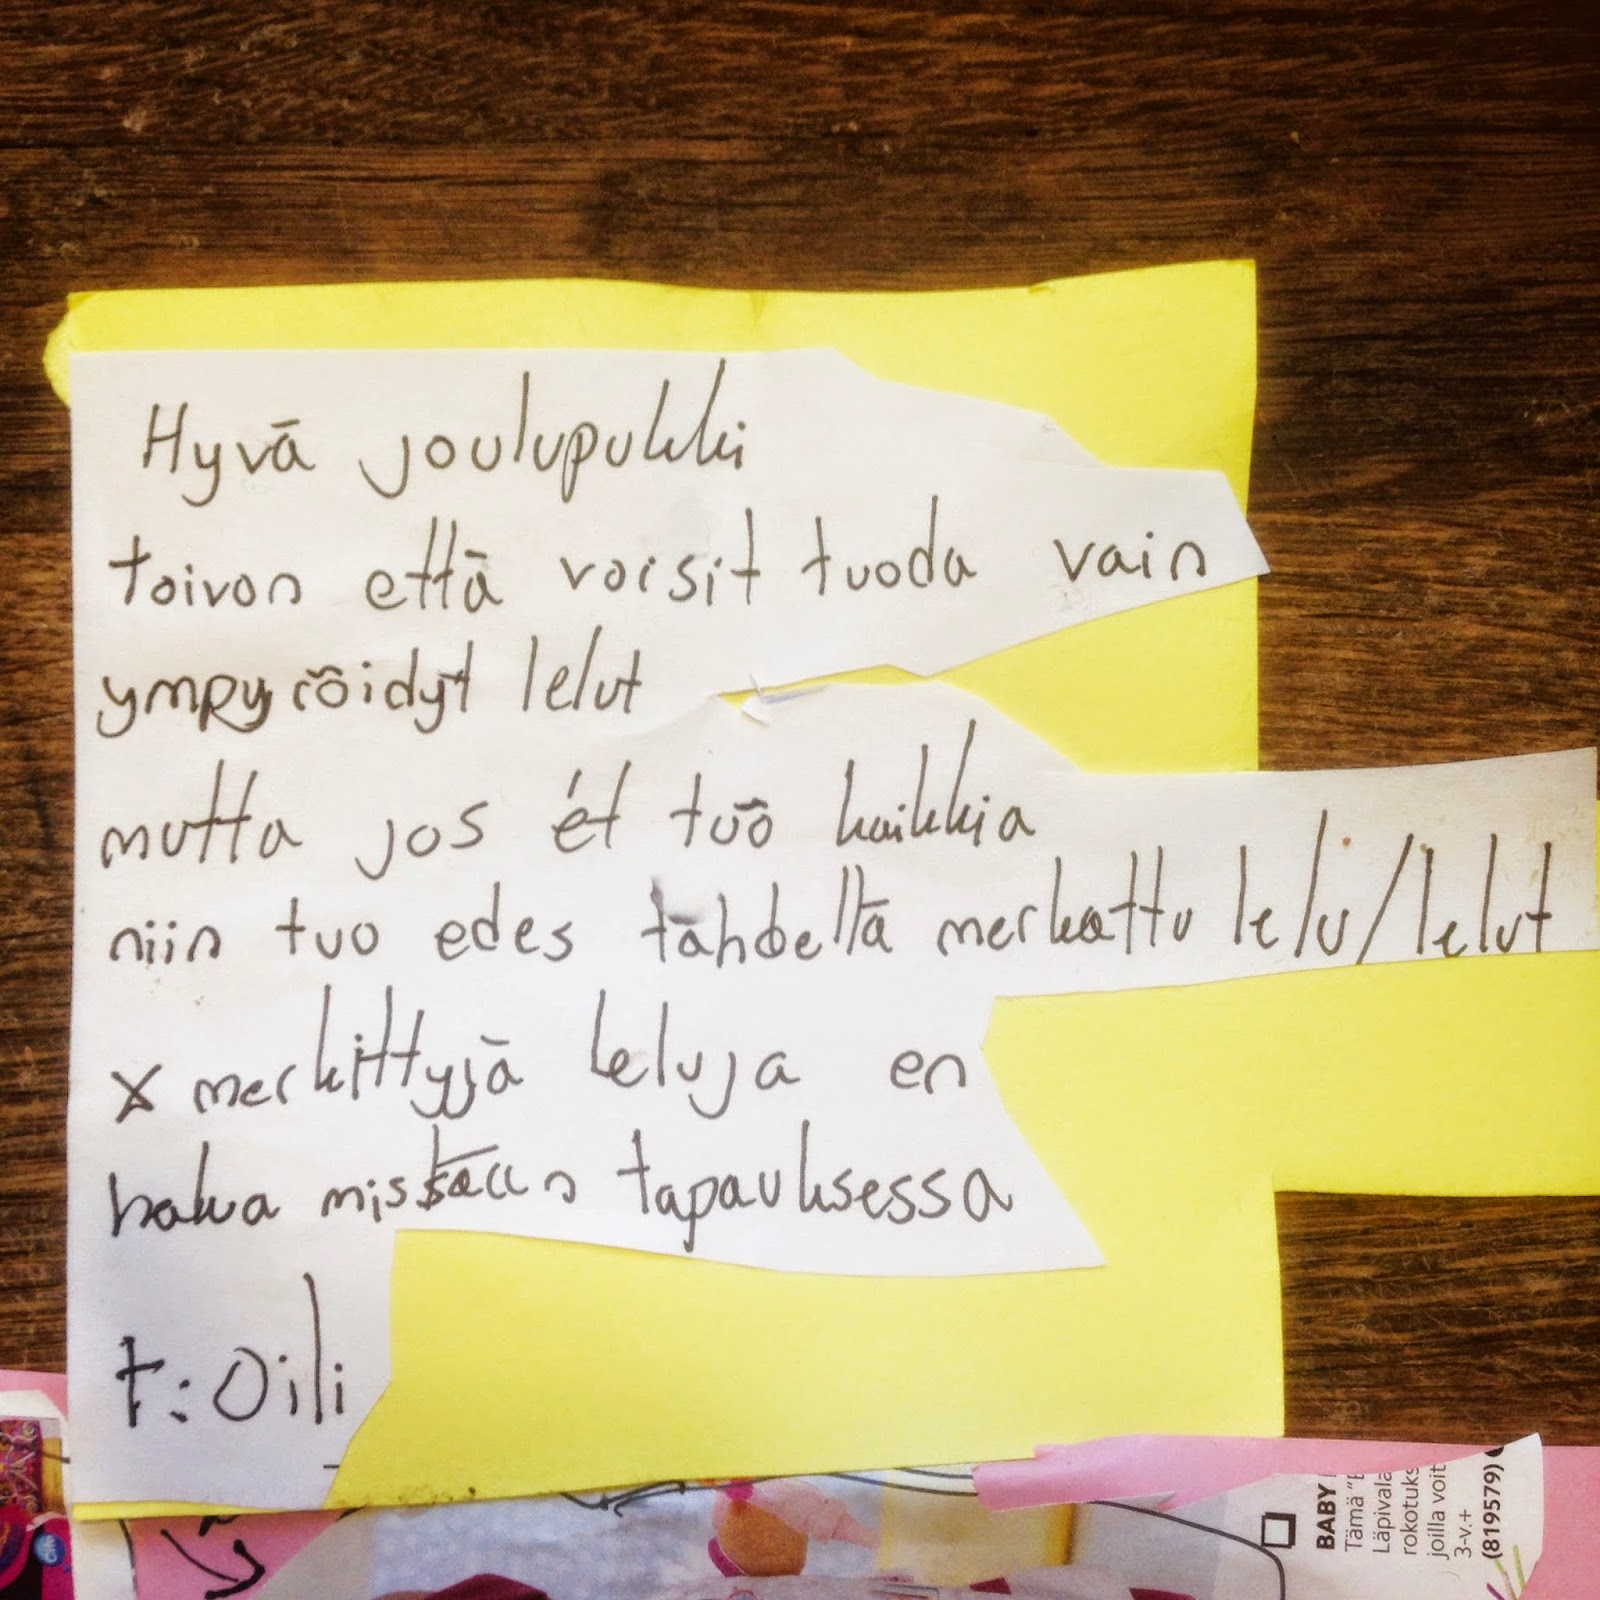 Hyvä joulupukki
toivon että voisit tuoda vain
ympyröidyt lelut
mutta jos et tuo kaikkia
niin tuo edes tähdeltä merkattu lelu/lelut
x merkittyjä leluja en
halua missään tapauksessa
t: Oili
BABY
Tämä "B
Läpivala
rokotuks
joilla voit
3-v.+
(819579)